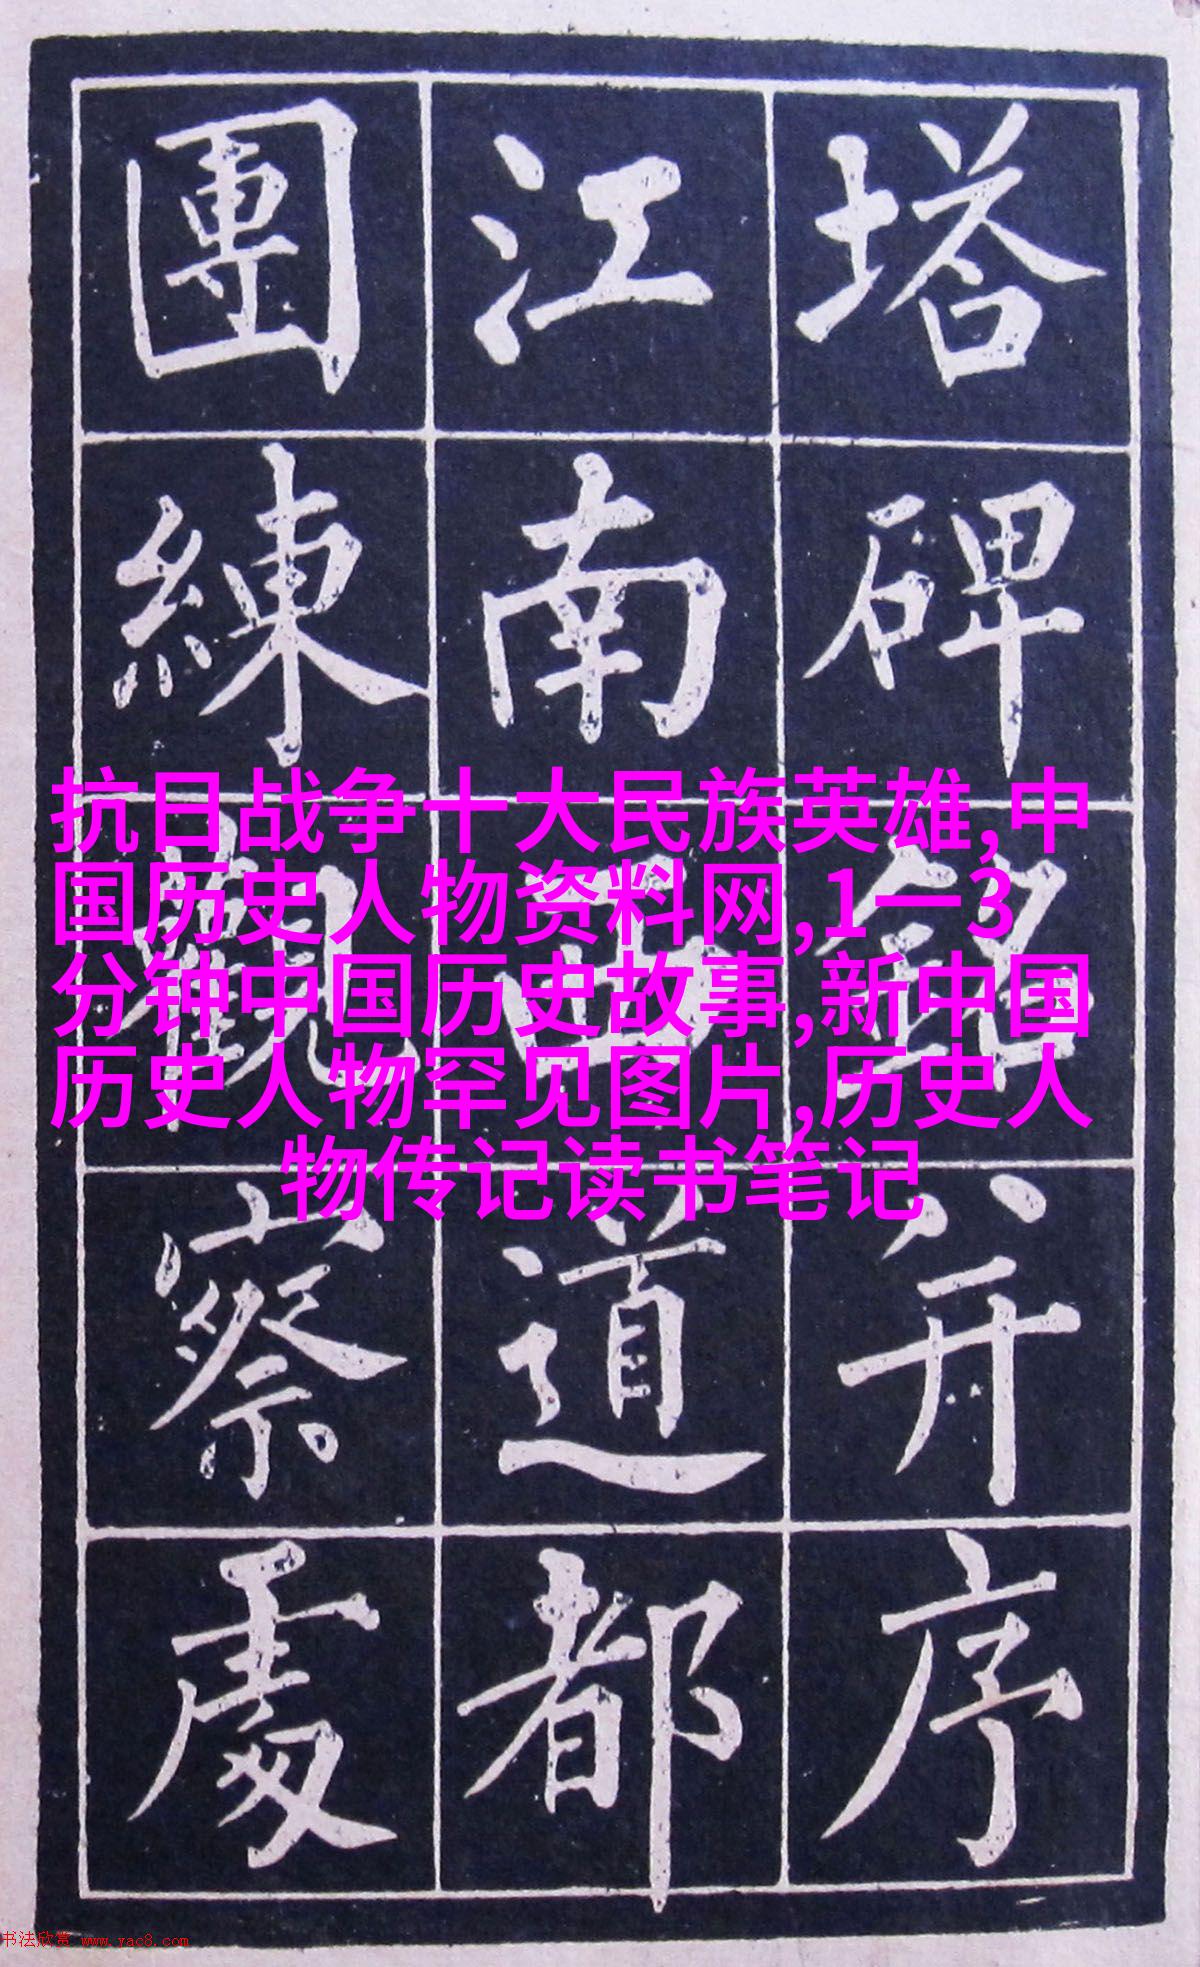 塔碑銘并序
江南西道都
團練觀察處
抗日战争十大民族英雄,中
国历史人物资料网,1一3
分钟中国历史故事,新中国
历史人物罕见图片,历史人
物传记读书笔记
书法欣赏 www.yac8.com